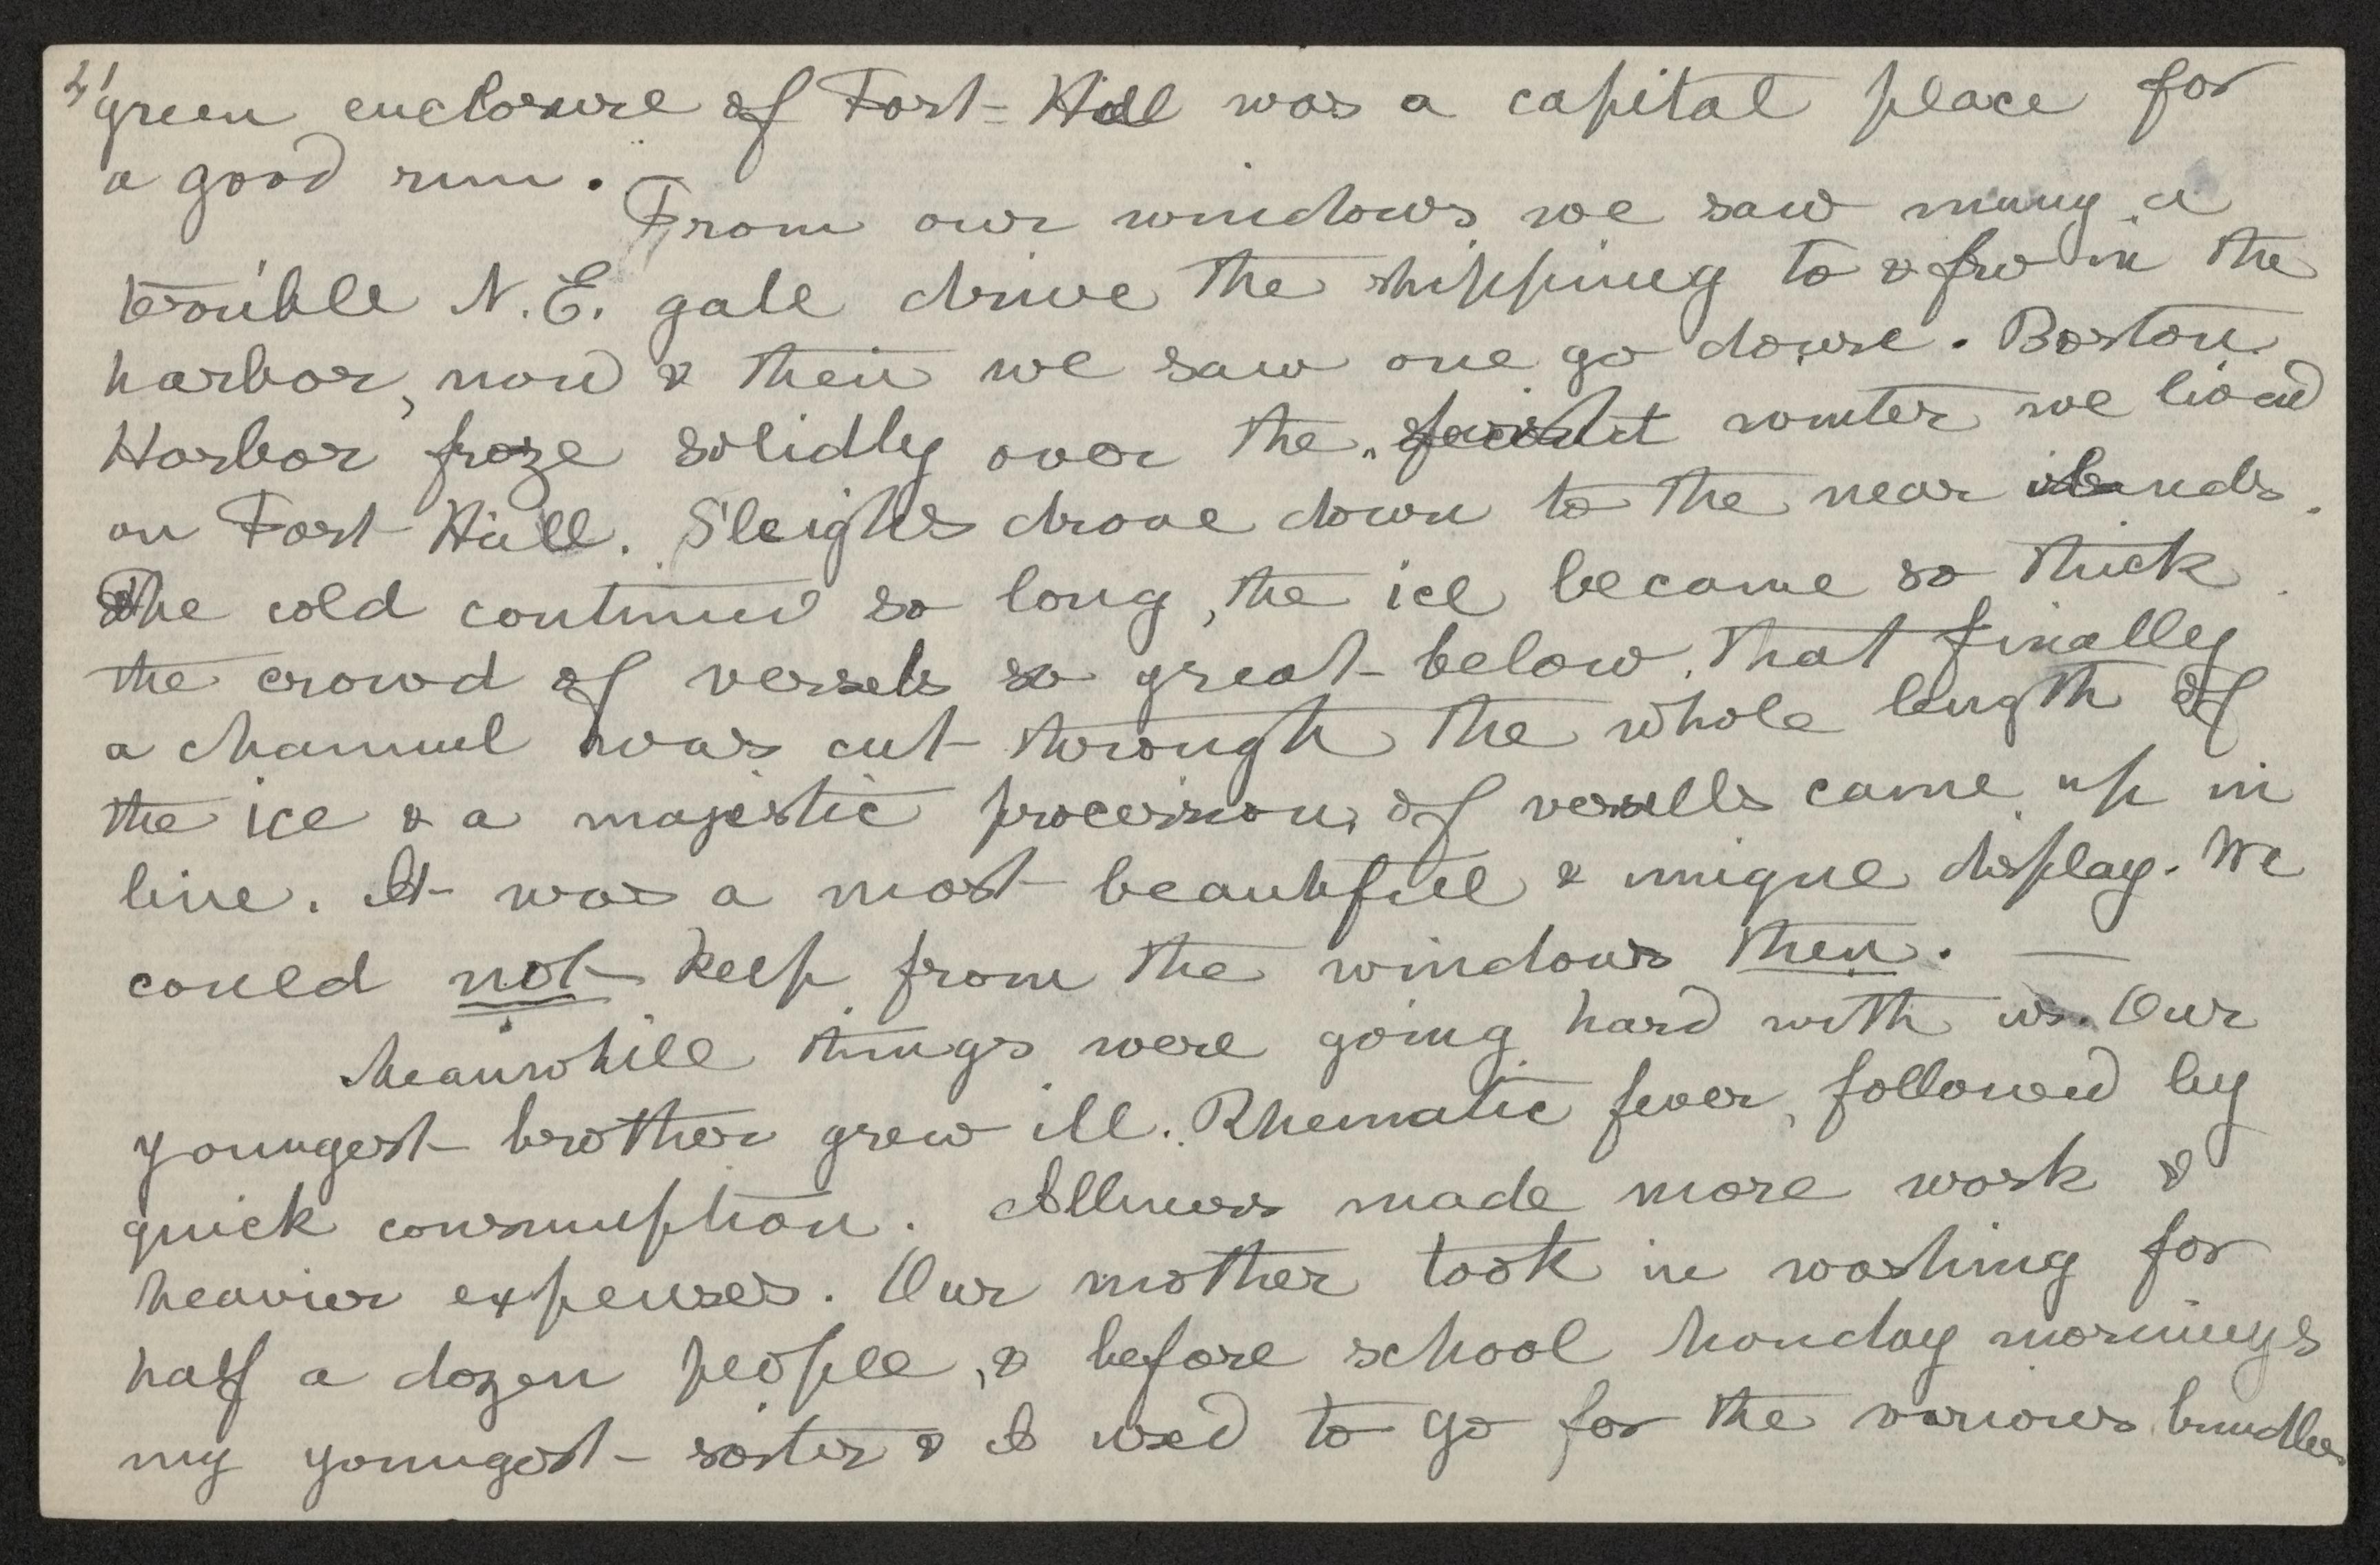 green enclosure of Fort-Hill was a capital place for
a good run.
From our windows we saw many a
terrible N.E. gale drive the shipping to & fro in the
harbor, now & then we saw one go down. Boston
Harbor froze solidly over the winter we lived
on Fort Hill. Sleighs drove down to the near islands.
The cold continued so long, the ice became so thick
the crowd of vessels so great below, that finally
a channel was cut through the whole length of
the ice & a majestic procession, of vessells came up in
line. It was a most beautiful & unique display. We
could not keep from the windows then. —
Meanwhile things were going hard with us. Our
youngest brother grew ill. Rhematic fever, followed by
quick consumption. Illness made more work &
heavier expenses. Our mother took in washing for
half a dozen people, & before school Monday mornings
my youngest sister & I used to go for the various bundles